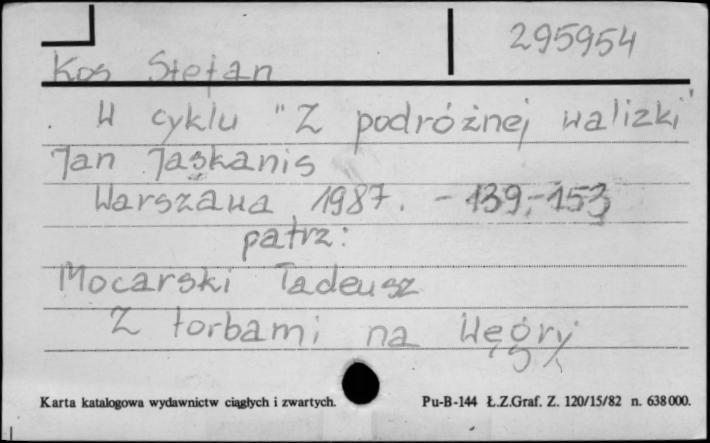 295954
Kos Stefan
W cyklu "Z podróżnej walizki"
Jan Jaskanis
Warszawa 1987. - 139,-153
patrz:
Mocarski Tadeusz
Z torbami na Węgry
Karta katalogowa wydawnictw ciągłych i zwartych. Pu-B-144 Ł.Z.Graf. Z. 120/15/82 n. 638000.